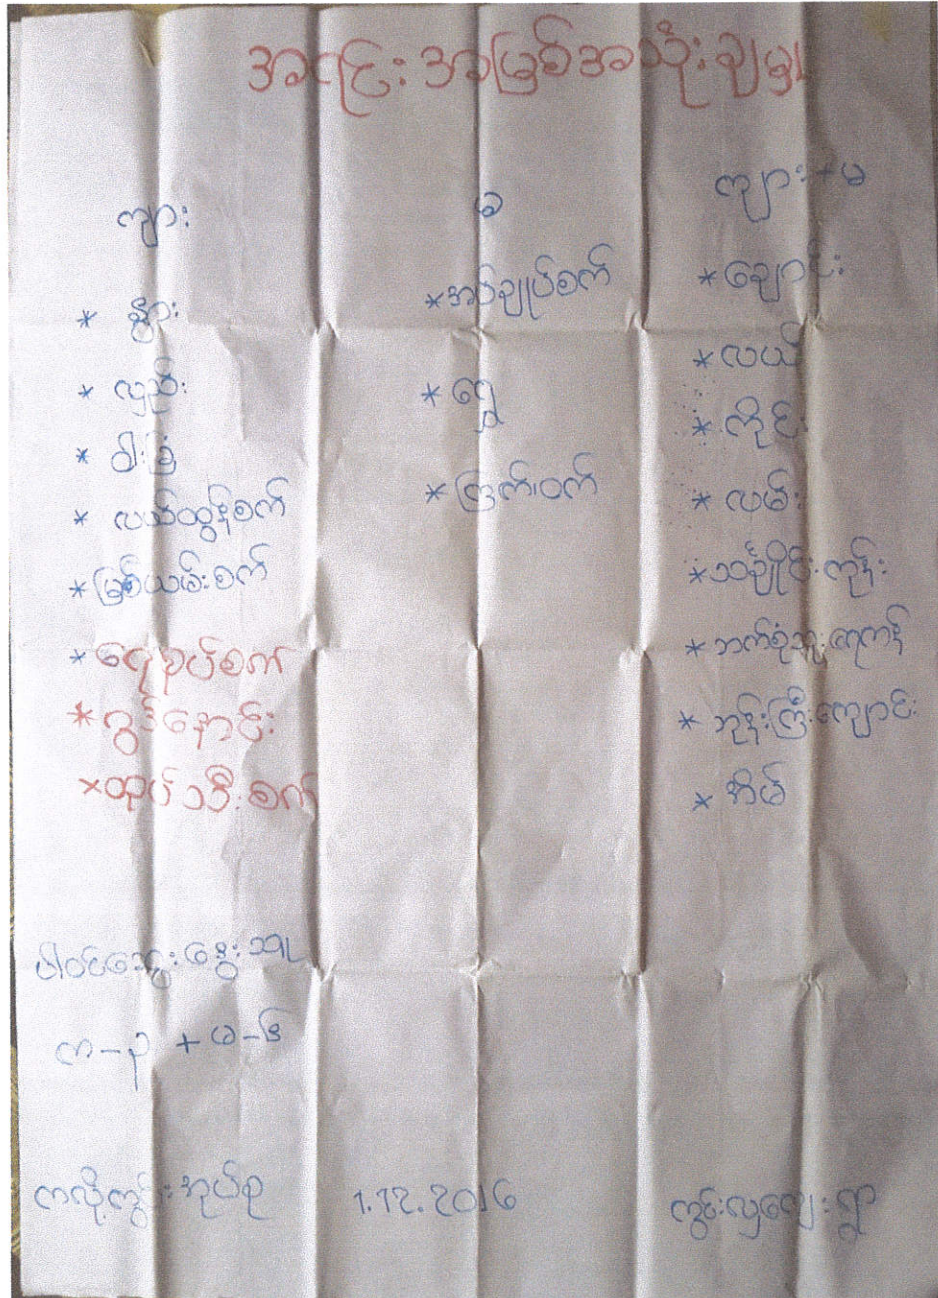 အရင်းအမြစ်အသုံးချမှု
ကျား
မ
ကျား+မ
* နွား
* လှည်း
* ဝါးခြံ
* လယ်ထွန်စက်
* မြစ်ယမ်းစက်
* ရေစုပ်စက်
* ဂွဒ်နောင်း
* ထုပ်သီးစက်
* အပ်ချုပ်စက်
* ရွှေ
* ကြက်၊ဝက်
* ချောင်း
* လယ်
* ကိုင်း
* လမ်း
* သင်္ချိုင်းကုန်း
* ဘက်စုံသူးရေကန်
* ဘုန်းကြီးကျောင်း
* အိမ်
ပါဝင်ဆွေးနွေးသူ
က-၃ + မ-၆
ကလိုကွင်းအုပ်စု
1.12.2016
ကွင်းလှလေးရွာ